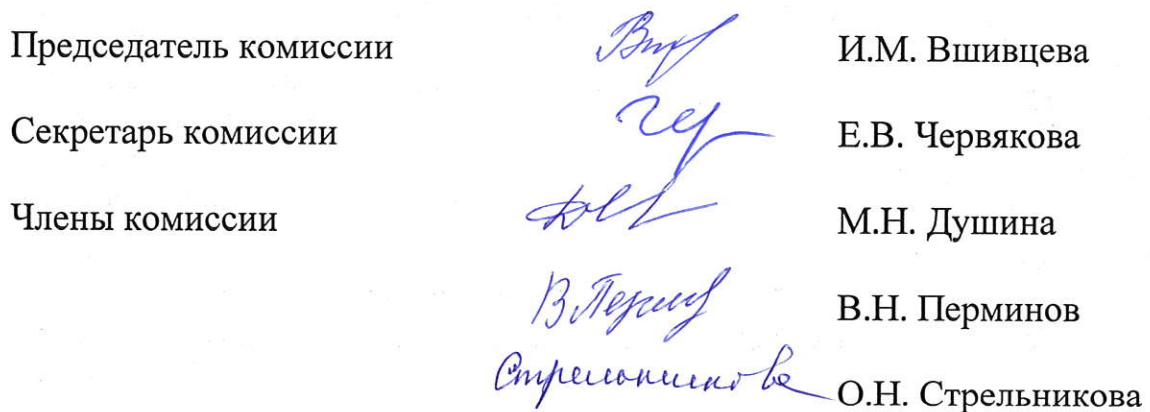 Председатель комиссии И.М. Вшивцева
Секретарь комиссии Е.В. Червякова
Члены комиссии М.Н. Душина
В Перми В.Н. Перминов
Стрельникова О.Н. Стрельникова